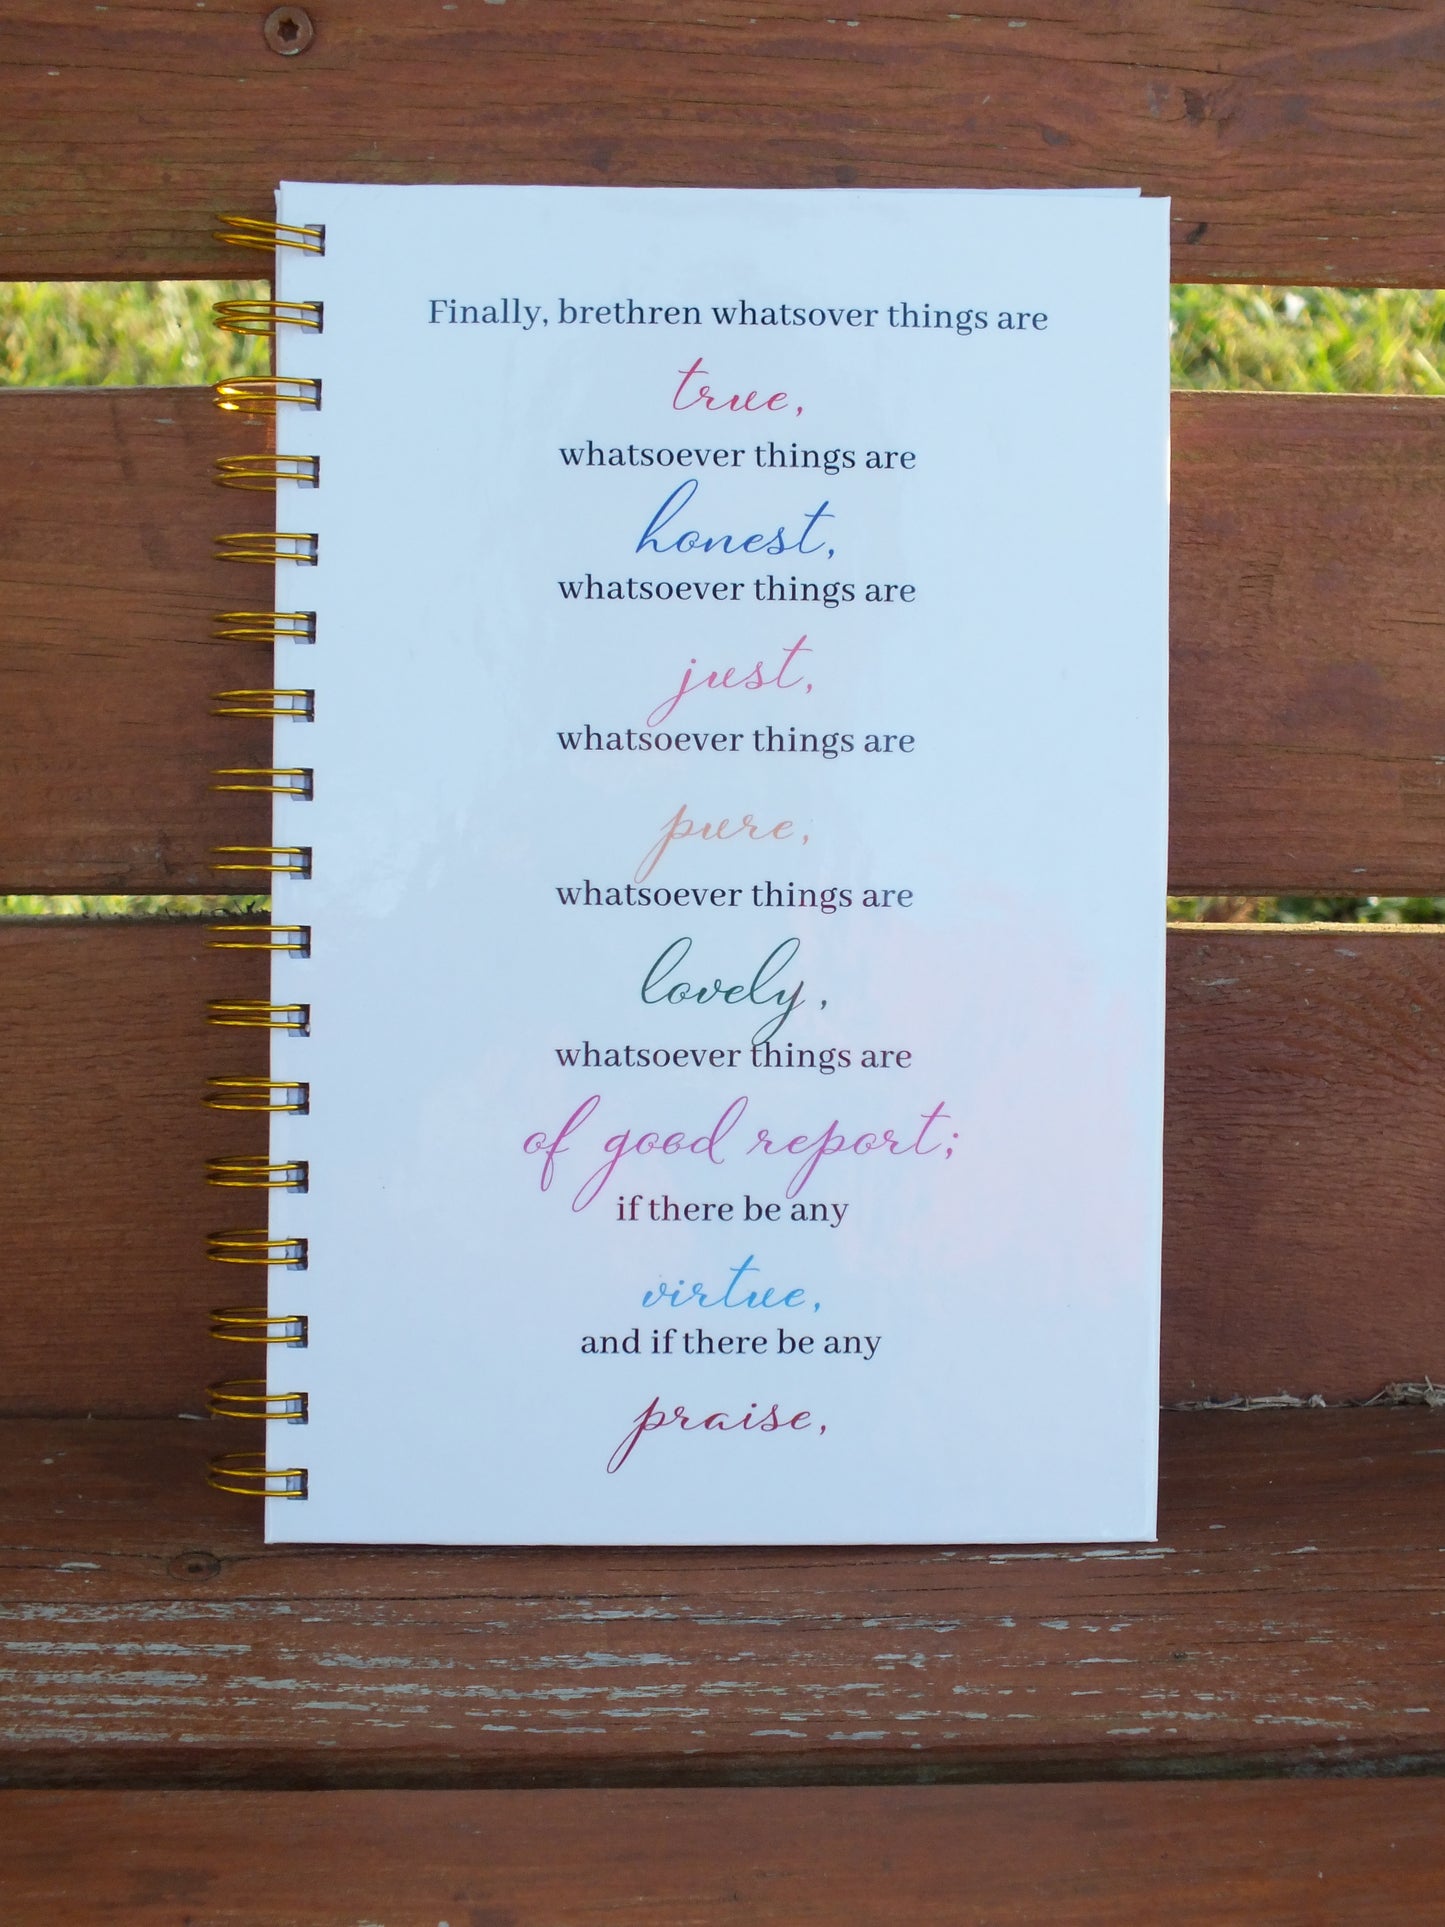 Finally, brethren whatsover things are
true,
whatsoever things are
honest,
whatsoever things are
just,
whatsoever things are
pure,
whatsoever things are
lovely,
whatsoever things are
of good report;
if there be any
virtue,
and if there be any
praise,